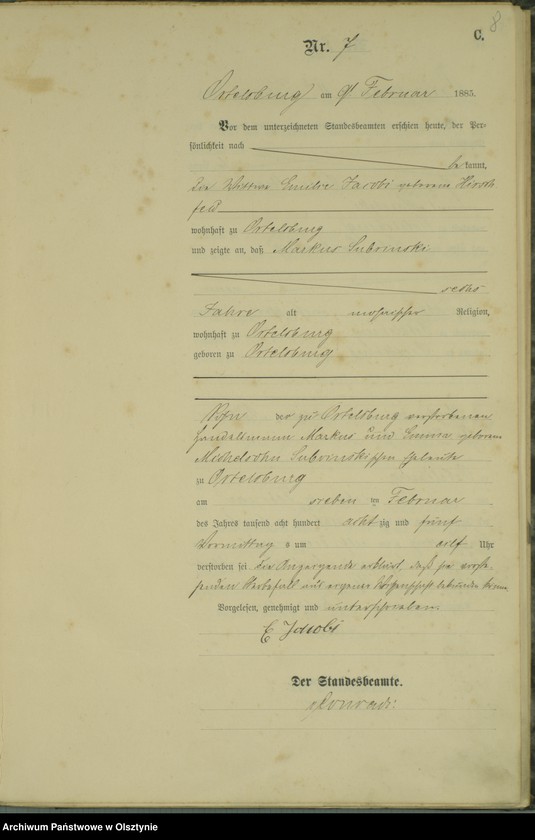 8
C.
Nr. 7
Ortelsburg am 9 Februar 1885.
Vor dem unterzeichneten Standesbeamten erschien heute, der Per-
sönlichkeit nach
be kannt,
die Wittwe Emilie Jacobi geborene Hirsch
feld
wohnhaft zu Ortelsburg
und zeigte an, daß Markus Subrinski
sechs
Jahre alt mosaischer Religion,
wohnhaft zu Ortelsburg
geboren zu Ortelsburg
Sohn der zu Ortelsburg verstorbenen
Handelsmann Markus und Emma geborene
Michelsohn Subrinskischen Eheleute
zu Ortelsburg
am sieben ten Februar
des Jahres tausend acht hundert acht zig und fünf
Vormittag s um elf Uhr
verstorben sei. Die Anzeigende erklärt, daß sie vorste-
henden Sterbefall aus eigener Wissenschaft bekunden könne.
Vorgelesen, genehmigt und unterschrieben.
E Jacobi
Der Standesbeamte.
Conradi
Archiwum Państwowe w Olsztynie